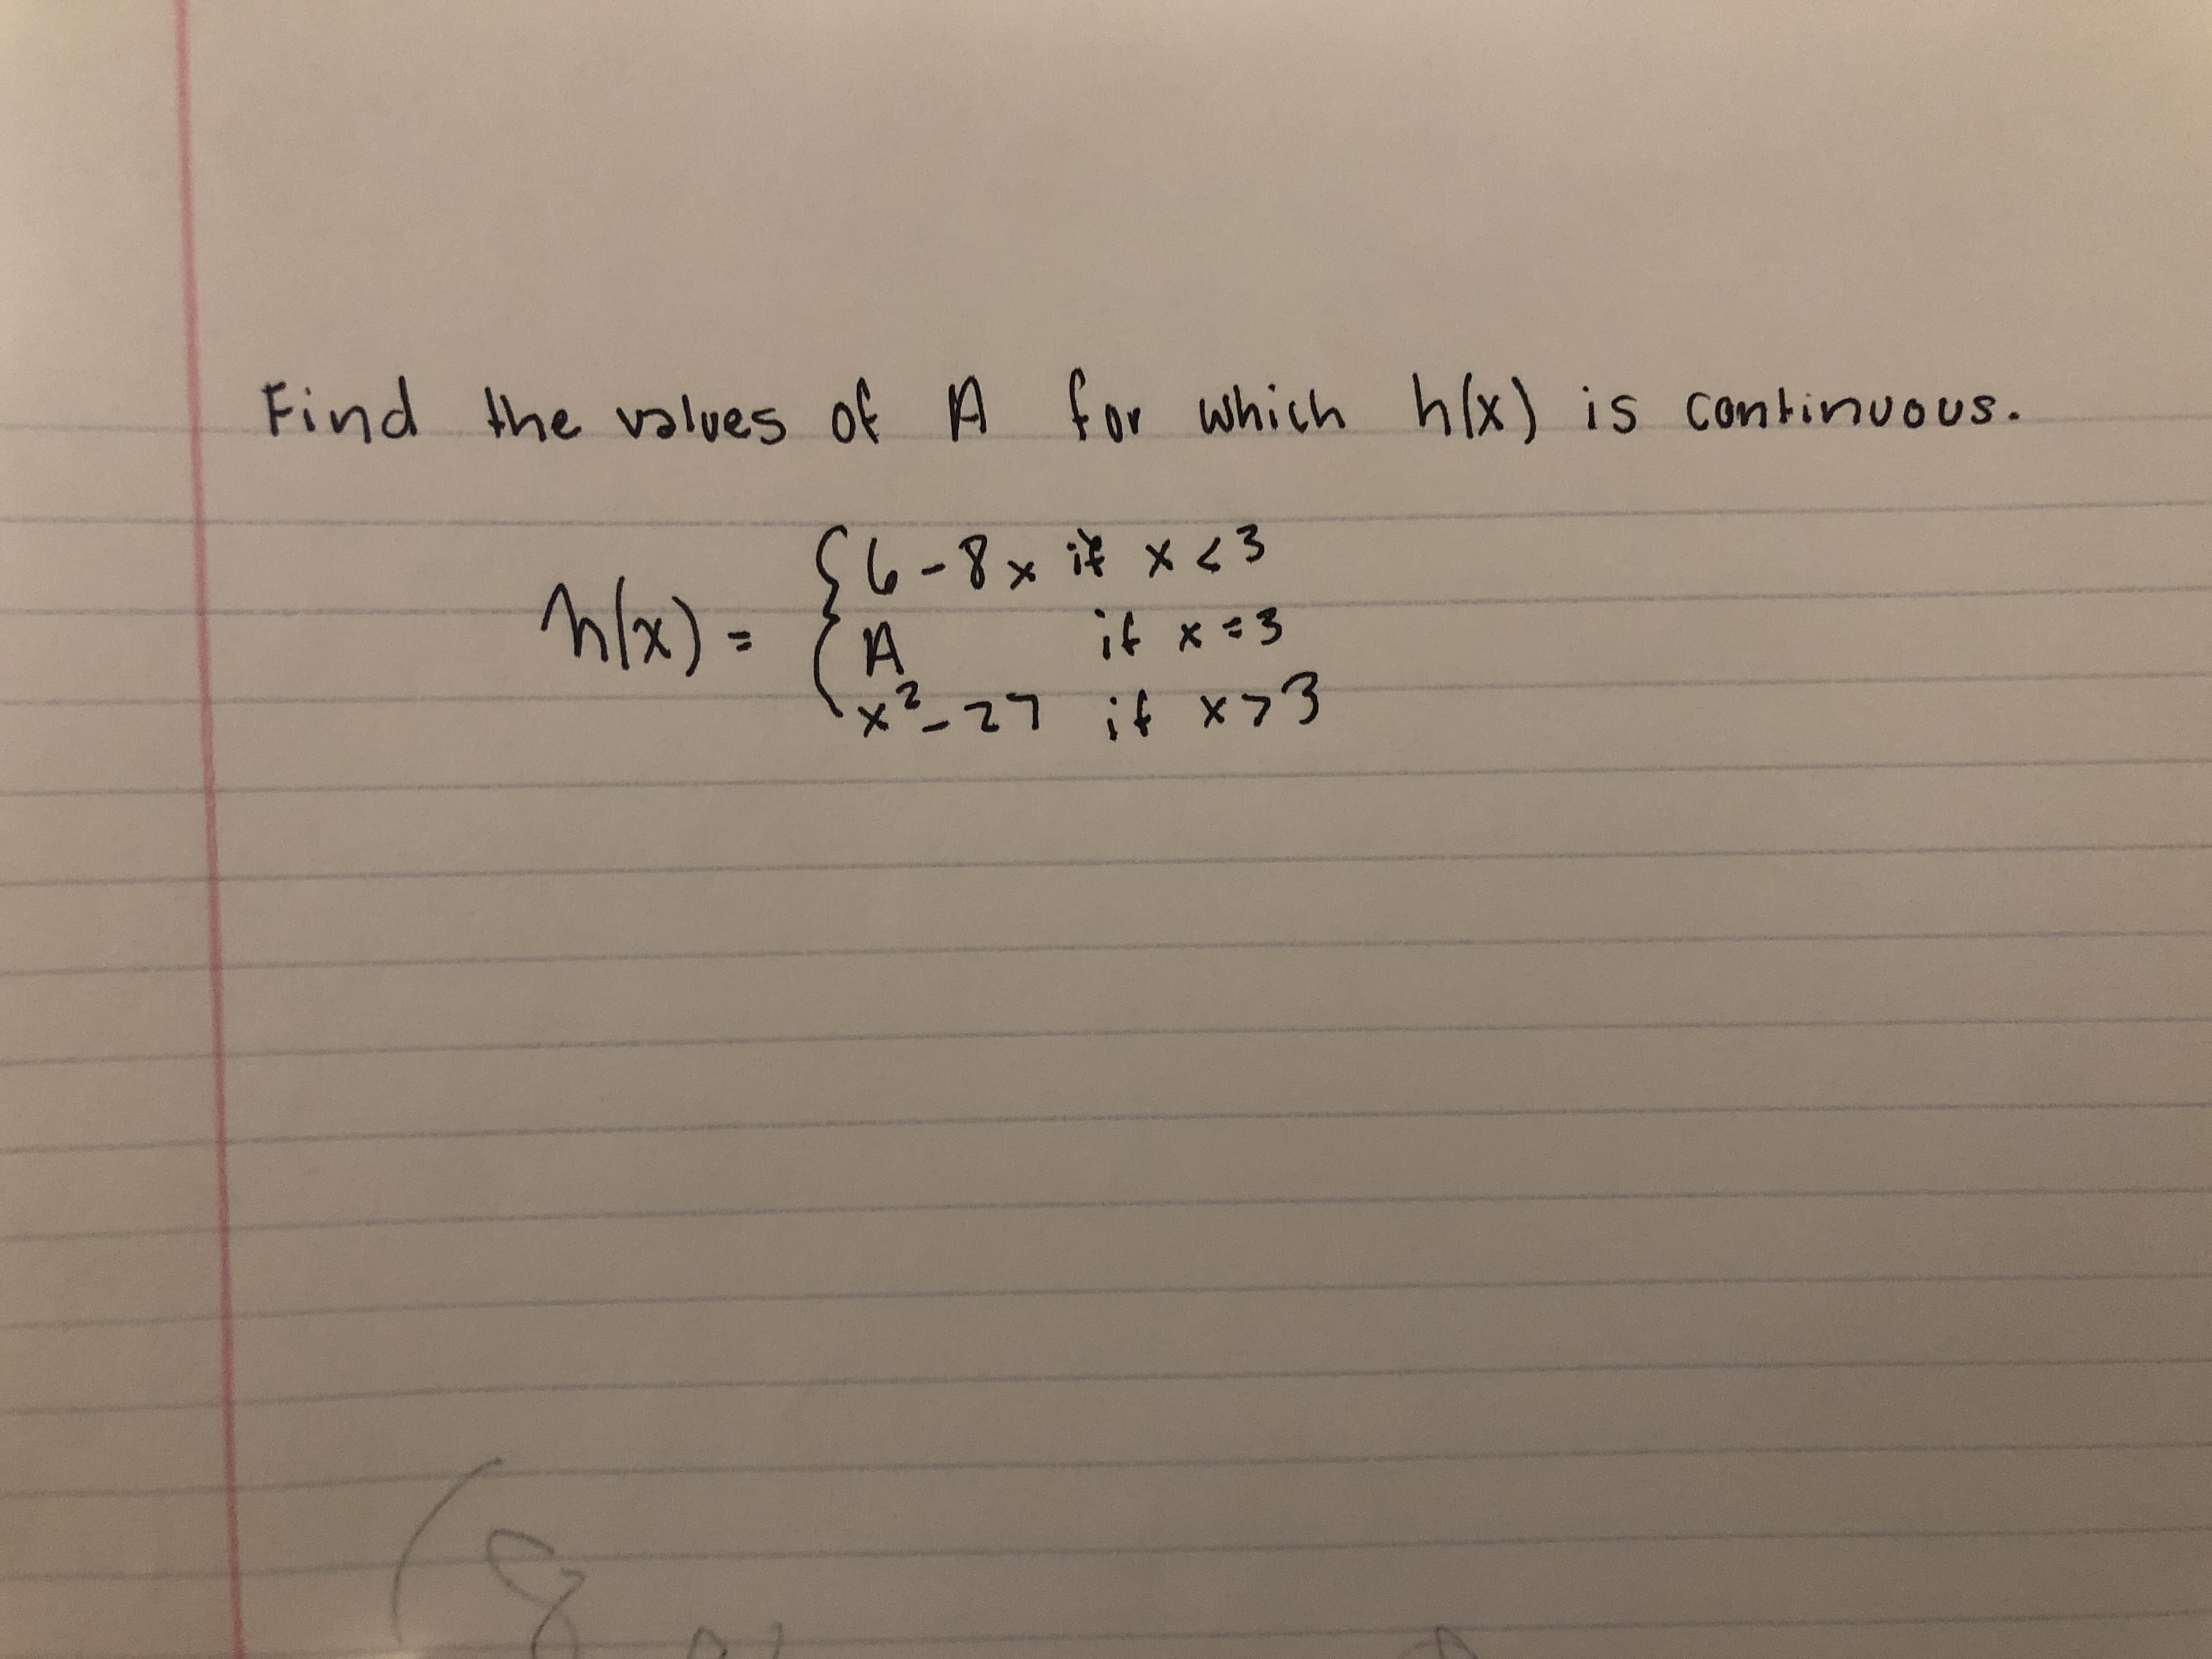 Find the values of A for which h(x) is continuous.
h(x) = { 6 - 8x if x < 3
A if x = 3
x² - 27 if x > 3
(8